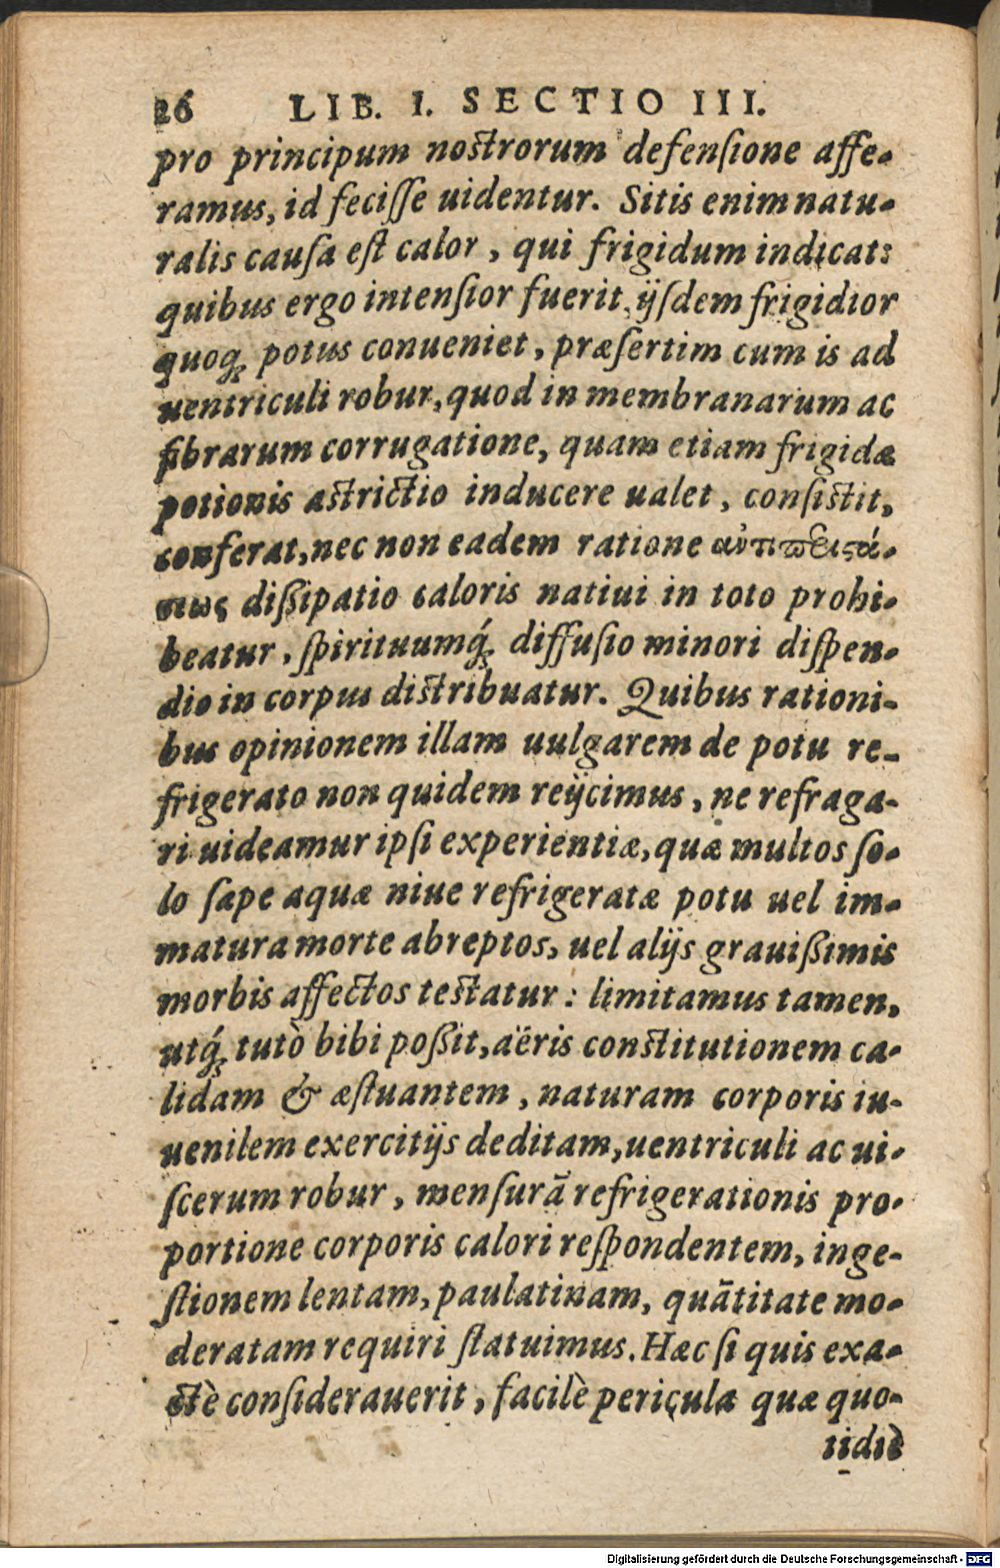 26 LIB. I. SECTIO III.
pro principum nostrorum defenſione affe-
ramus, id feciſſe uidentur. Sitis enim natu-
ralis cauſa eſt calor, qui frigidum indicat:
quibus ergo intenſior fuerit, ijſdem frigidior
quoq; potus conueniet, præſertim cum is ad
uentriculi robur, quod in membranarum ac
fibrarum corrugatione, quam etiam frigidæ
potionis astrictio inducere ualet, conſistit,
conferat, nec non eadem ratione αὐτιπεριστά-
σεως dißipatio caloris natiui in toto prohi-
beatur, ſpirituumq́; diffuſio minori diſpen-
dio in corpus distribuatur. Quibus rationi-
bus opinionem illam uulgarem de potu re-
frigerato non quidem reijcimus, ne refraga-
ri uideamur ipſi experientiæ, quæ multos ſo-
lo ſæpe aquæ niue refrigeratæ potu uel im-
matura morte abreptos, uel alijs grauißimis
morbis affectos testatur: limitamus tamen,
utq́; tutò bibi poßit, aëris constitutionem ca-
lidam & æſtuantem, naturam corporis iu-
uenilem exercitijs deditam, uentriculi ac ui-
ſcerum robur, menſurã refrigerationis pro-
portione corporis calori reſpondentem, inge-
ſtionem lentam, paulatinam, quãtitate mo-
deratam requiri ſtatuimus. Hæc ſi quis exa-
ctè conſiderauerit, facilè pericula quæ quo-
tidiè
Digitalisierung gefördert durch die Deutsche Forschungsgemeinschaft - DFG